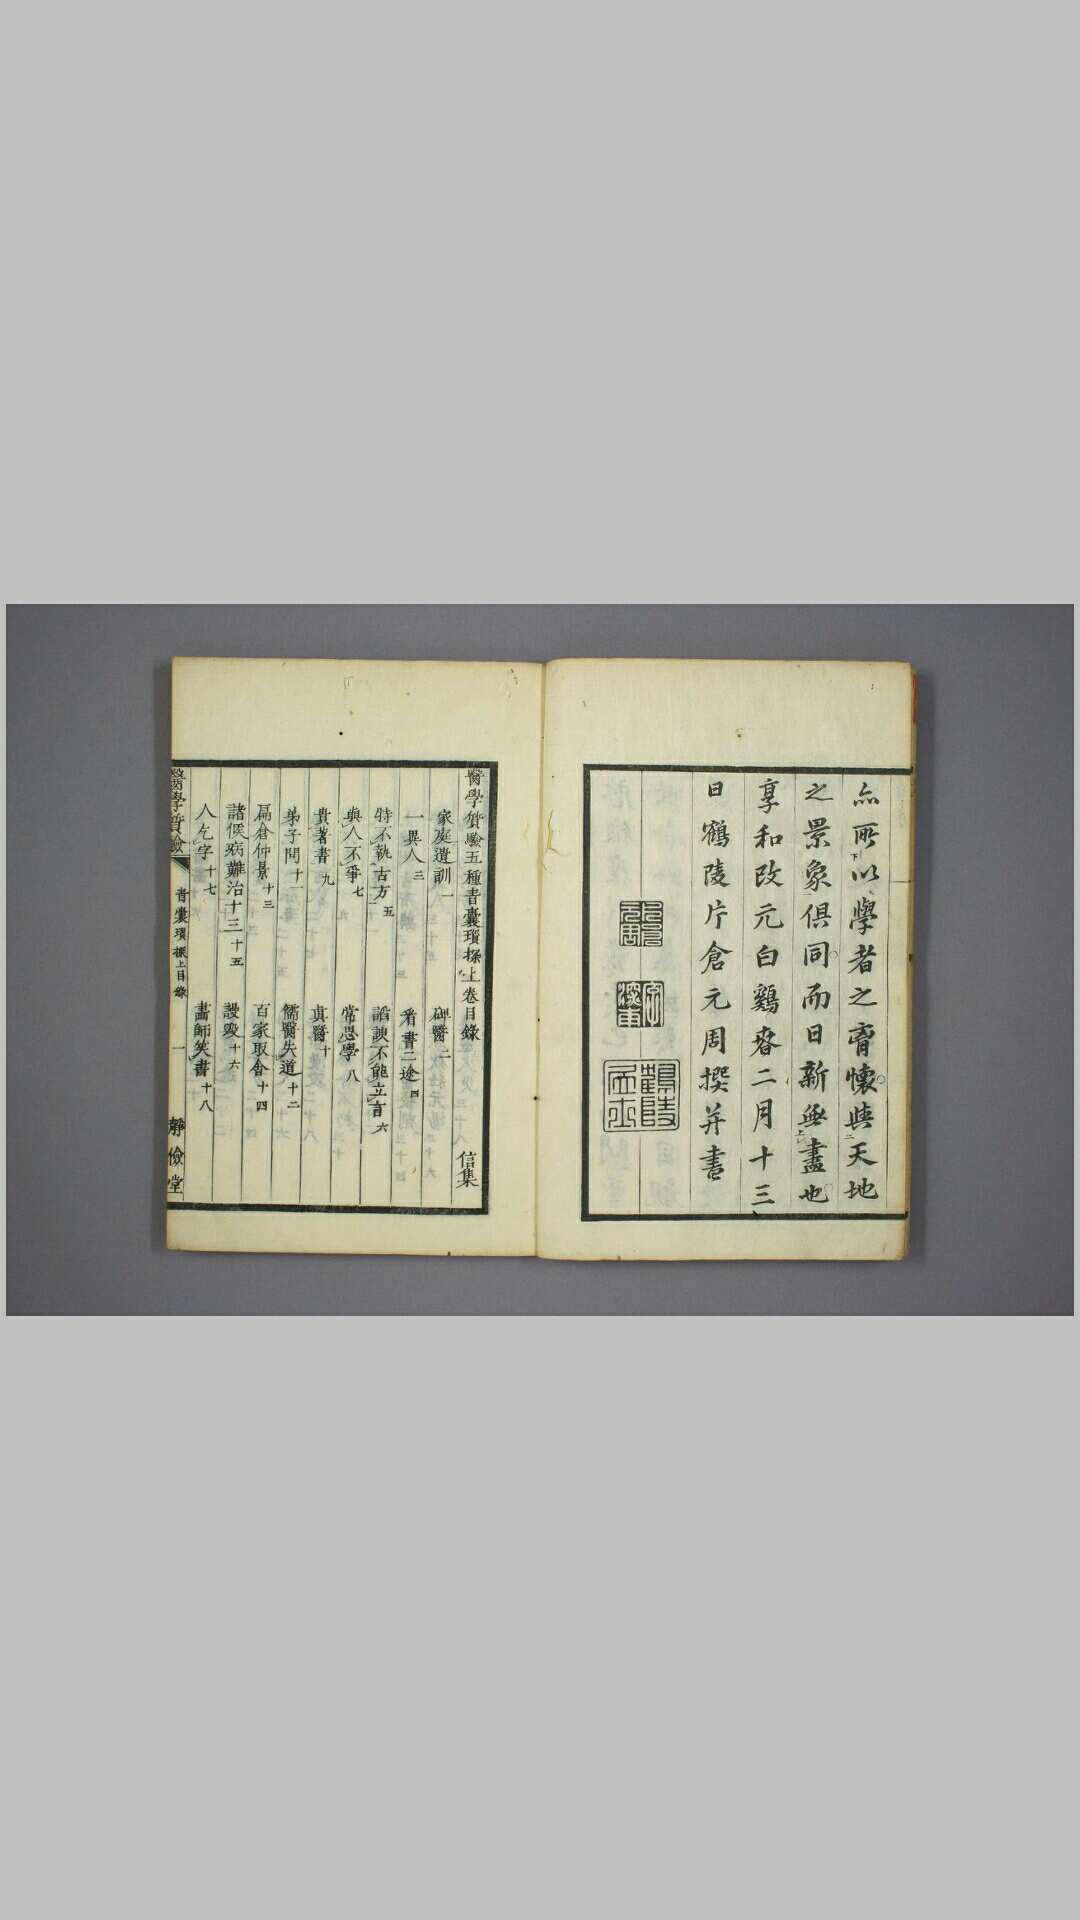 亦所以學者之胷懷與天地
之景象俱同而日新無盡也
享和改元白鷄春二月十三
日鶴陵片倉元周撰并書
鶴陵
醫學質驗五種青囊瑣探上卷目錄 信集
家庭遺訓一 碑醫二
一異人三 看書二途四
特不執古方五 諂諛不能立言六
與人不爭七 常思學八
貴著書九 真醫十
弟子問十一 儒醫失道十二
扁倉仲景十三 百家取舍十四
諸侯病難治十三十五 謾毀十六
人乞字十七 畵師笑書十八
醫學質驗 青囊瑣探上目錄 一 靜儉堂